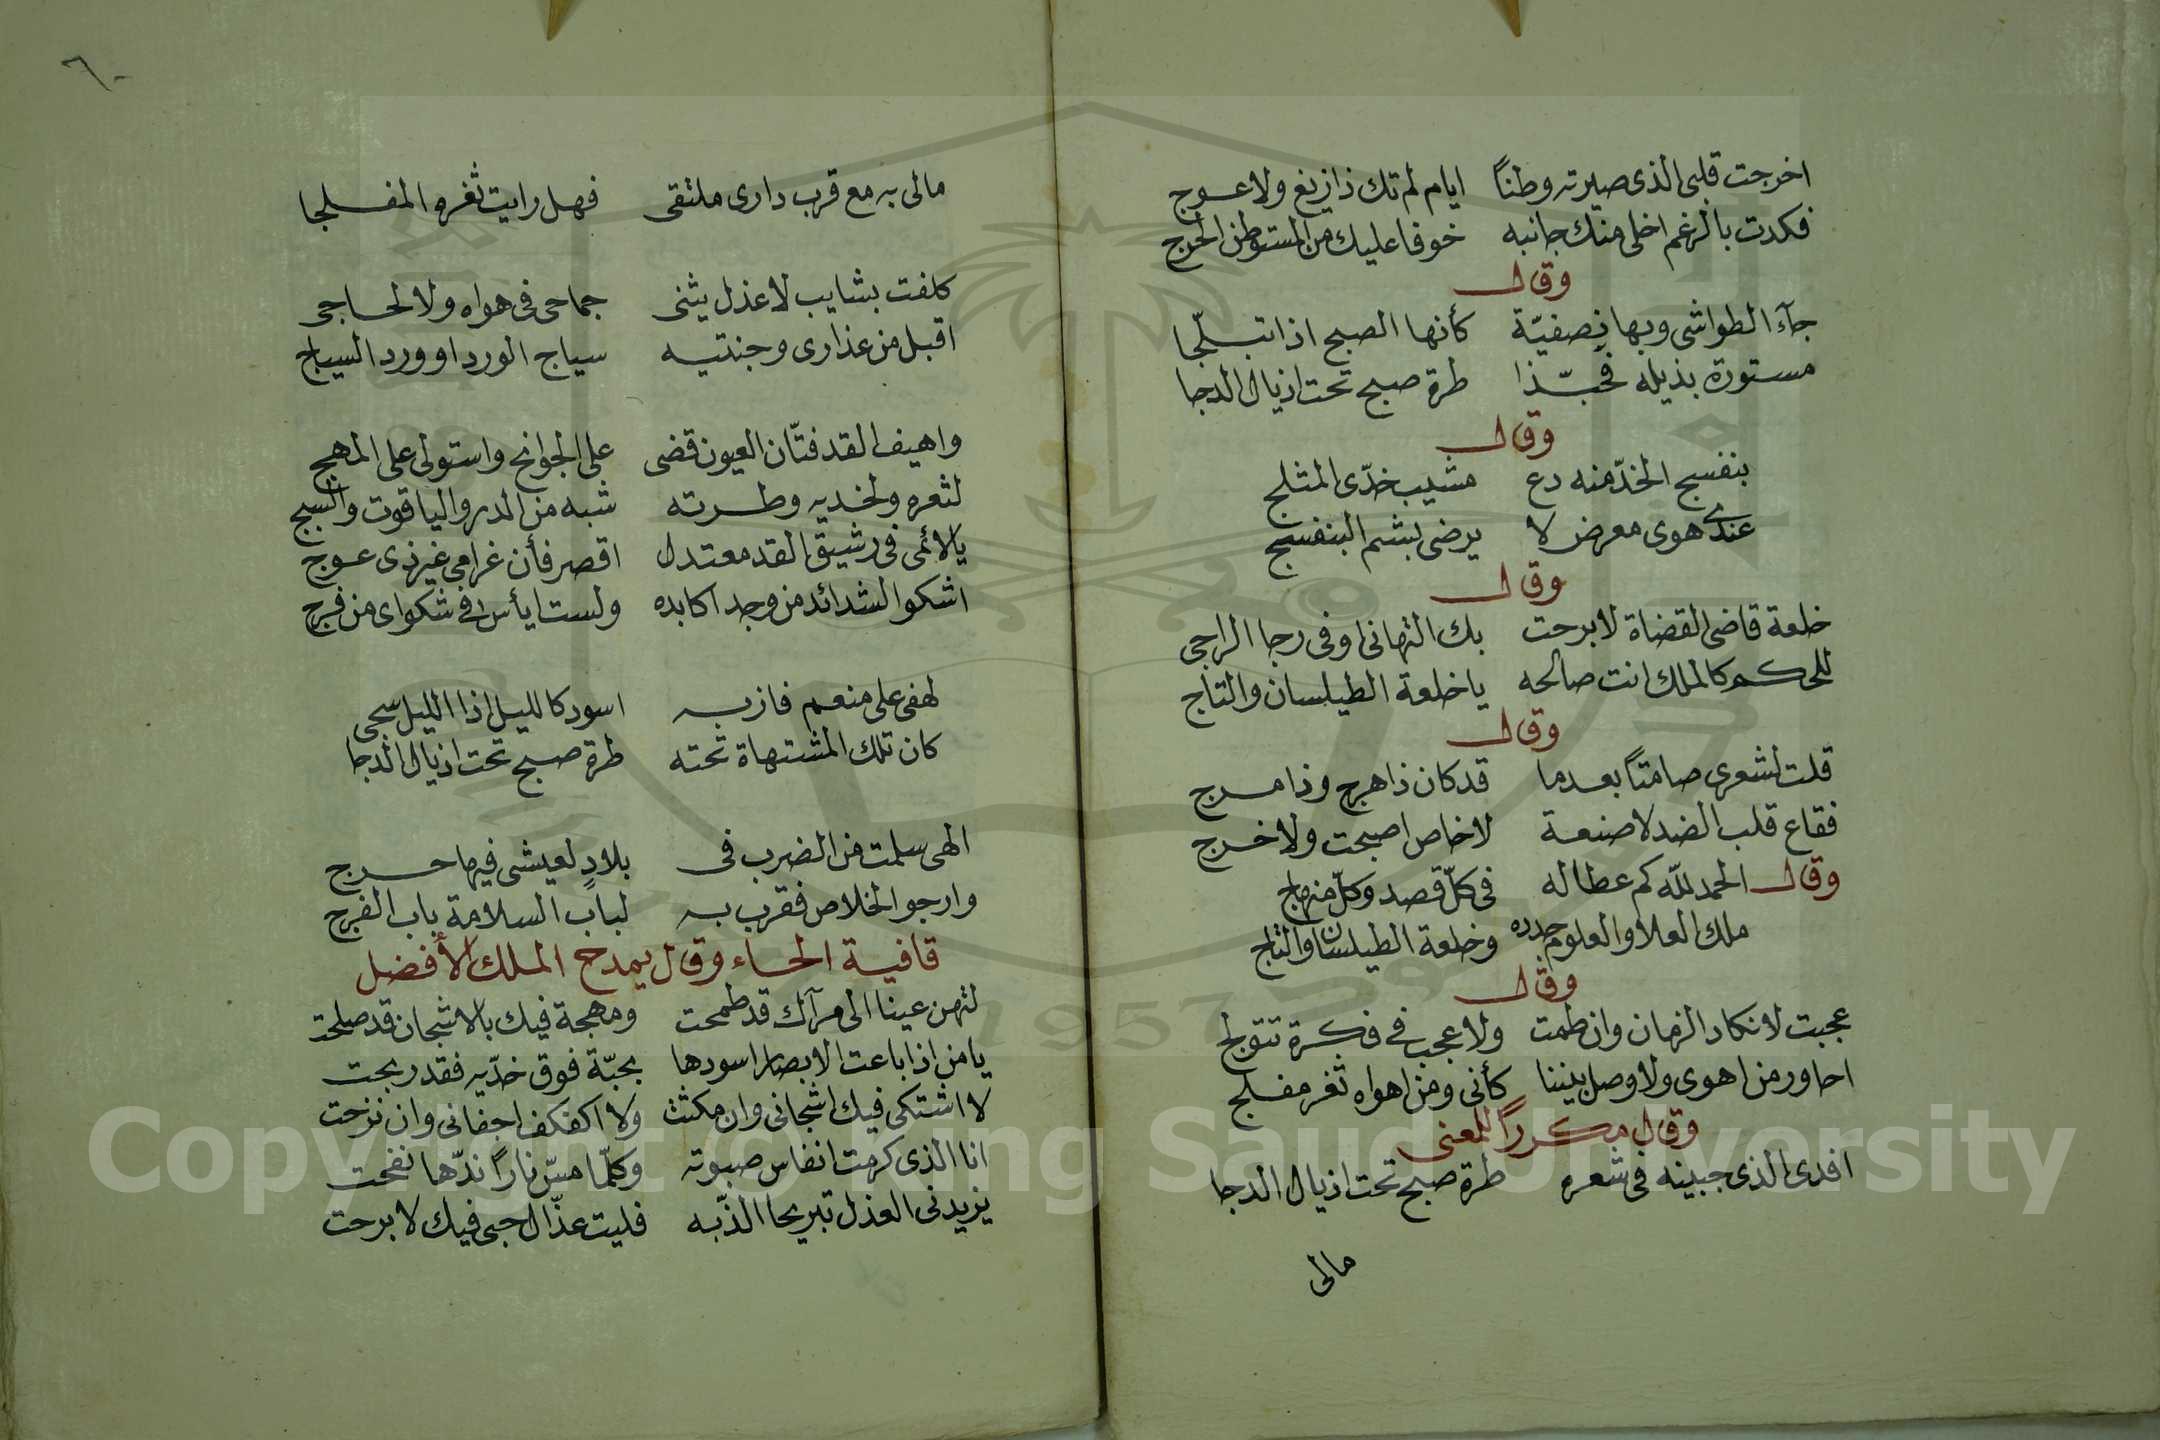 اخرجت قلبى الذى صيرته وطنًا ايام لم تك ذا زيغ ولا عوج
فكدت بالرغم اخلى منك جانبه خوفا عليك من المستوطن الحرج
وقال
جآء الطواشى وبها نصفيّة كأنها الصبح اذا تبلّجا
مستورة بذيله فحبّذا طرة صبح تحت اذيال الدجا
وقال
بنفسج الخدّ منه دع مشيب خدّى المثلج
عندى هوى معرض لا يرضى بشم البنفسج
وقال
خلعة قاضى القضاة لا برحت بك التهانى وفى رجا الراجى
للحكم كالملك انت صالحه يا خلعة الطيلسان والتاج
وقال
قلت لشعرى صامتًا بعدما قد كان ذا هرج وذا مرج
فقاع قلب الضد لا صنعة لا خاص اصبحت ولا خرج
وقال الحمد لله كم عطا له فى كلّ قصد وكلّ منهاج
ملك العلا والعلوم جدده وخلعة الطيلسان والتاج
وقال
عجبت لانكاد الزمان وان طمت ولا عجب فى فكرة تتولج
احاور من اهوى ولا وصل بيننا كأنى ومن اهواه ثغر مفلج
وقال مكررًا للمعنى
افدى الذى جبينه فى شعره طرة صبح تحت اذيال الدجا
مالى
٦٠
مالى به مع قرب دارى ملتقى فهل رايت ثغره المفلجا
كلفت بشايب لا عذل يثنى جماحى فى هواه ولا لحاجى
اقبل من عذارى وجنتيه سياج الورد او ورد السياج
واهيف القد فتّان العيون قضى على الجوانح واستولى على المهج
لثغره ولخديه وطرته شبه من الدر والياقوت والسبج
يا لائمى فى رشيق القد معتدل اقصر فأن غرامى غير ذى عوج
اشكو الشدائد من وجد اكابده ولست ايأس فى شكواى من فرج
لهفى على منعم فاز به اسود كالليل اذا الليل سجى
كان تلك المشتهاة تحته طرة صبح تحت اذيال الدجا
الهى سلمت من الضرب فى بلادٍ لعيشى فيها حرج
وارجو الخلاص فقرب به لباب السلامة باب الفرج
قافية الحاء وقال يمدح الملك الأفضل
لتهن عينا الى مرآك قد طمحت ومهجة فيك بالاشجان قد صلحت
يا من اذا باعت الابصار اسودها بحبّة فوق خدّيه فقد ربحت
لا اشتكى فيك اشجانى وان مكثت ولا اكفكف اجفانى وان نزحت
انا الذى كرمت انفاس صبوته وكلّما مسّ نارًا ندّها نفحت
يزيدنى العذل تبريحا الذّ به فليت عذّال حبى فيك لا برحت